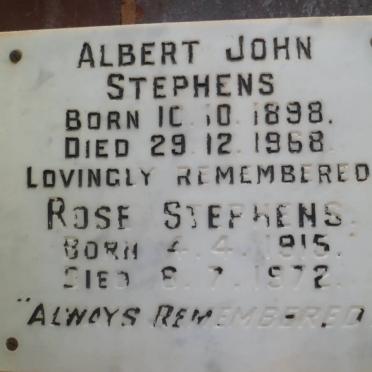 ALBERT JOHN
STEPHENS
BORN 10.10.1898.
DIED 29.12.1968
LOVINGLY REMEMBERED
ROSE STEPHENS.
BORN 4.4.1915.
DIED 8.7.1972.
"ALWAYS REMEMBERED."